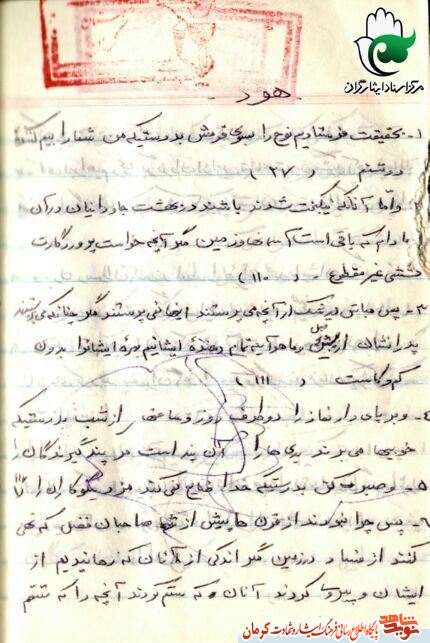 مرکز اسناد ایثارگران
هود
۱- بحقیقت فرستادیم نوح را بسوی قومش بدرستیکه من شما را بیم کننده
روشنم ( ۲۷ )
و اما آنانکه نیکبخت شدند باشند در بهشت جاودانیان در آن
مادام که باقی است آسمانها و زمین مگر آنچه خواست پروردگارت
غیر مقطوع ( ۱۱۰ )
۳- پس مباش در شک از آنچه می پرستند اینها نمی پرستند مگر چنانکه می پرستند
پدرانشان از قبل و ما هر آینه تمام دهنده ایشانیم بهره ایشانرا بدون
کم و کاست ( ۱۱۱ )
۴- و بر پای دار نماز را دو طرف روز و ساعتی از شب بدرستیکه
خوبیها می برند بدی ها را آن پند است مر پند گیرندگان را
۵- و صبر کن بدرستیکه خدا ضایع نمی کند مزد نیکوکاران را
۶- پس چرا نبودند از قرن ها پیش از شما صاحبان فضل که نهی
کنند از فساد در زمین مگر اندکی از آنان که رهانیدیم از
ایشان و پیروی کردند آنان که ستم کردند آنچه را که متنعم
نوید شاهد
پایگاه اطلاع رسانی فرهنگ ایثار و شهادت کرمان